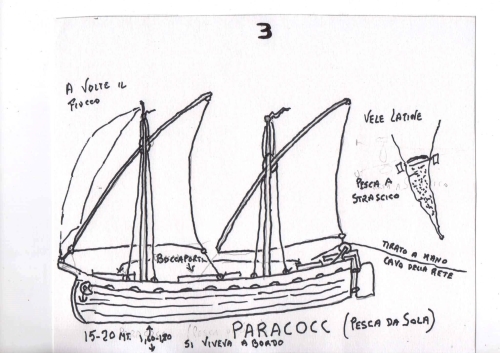 3
A VOLTE IL
FIOCCO
VELE LATINE
PESCA A
STRASCICO
BOCCAPORTI
TIRATO A MANO
CAVO DELLA RETE
15-20 MT. 1,60-1,80
PARACOCC (PESCA DA SOLA)
SI VIVEVA A BORDO